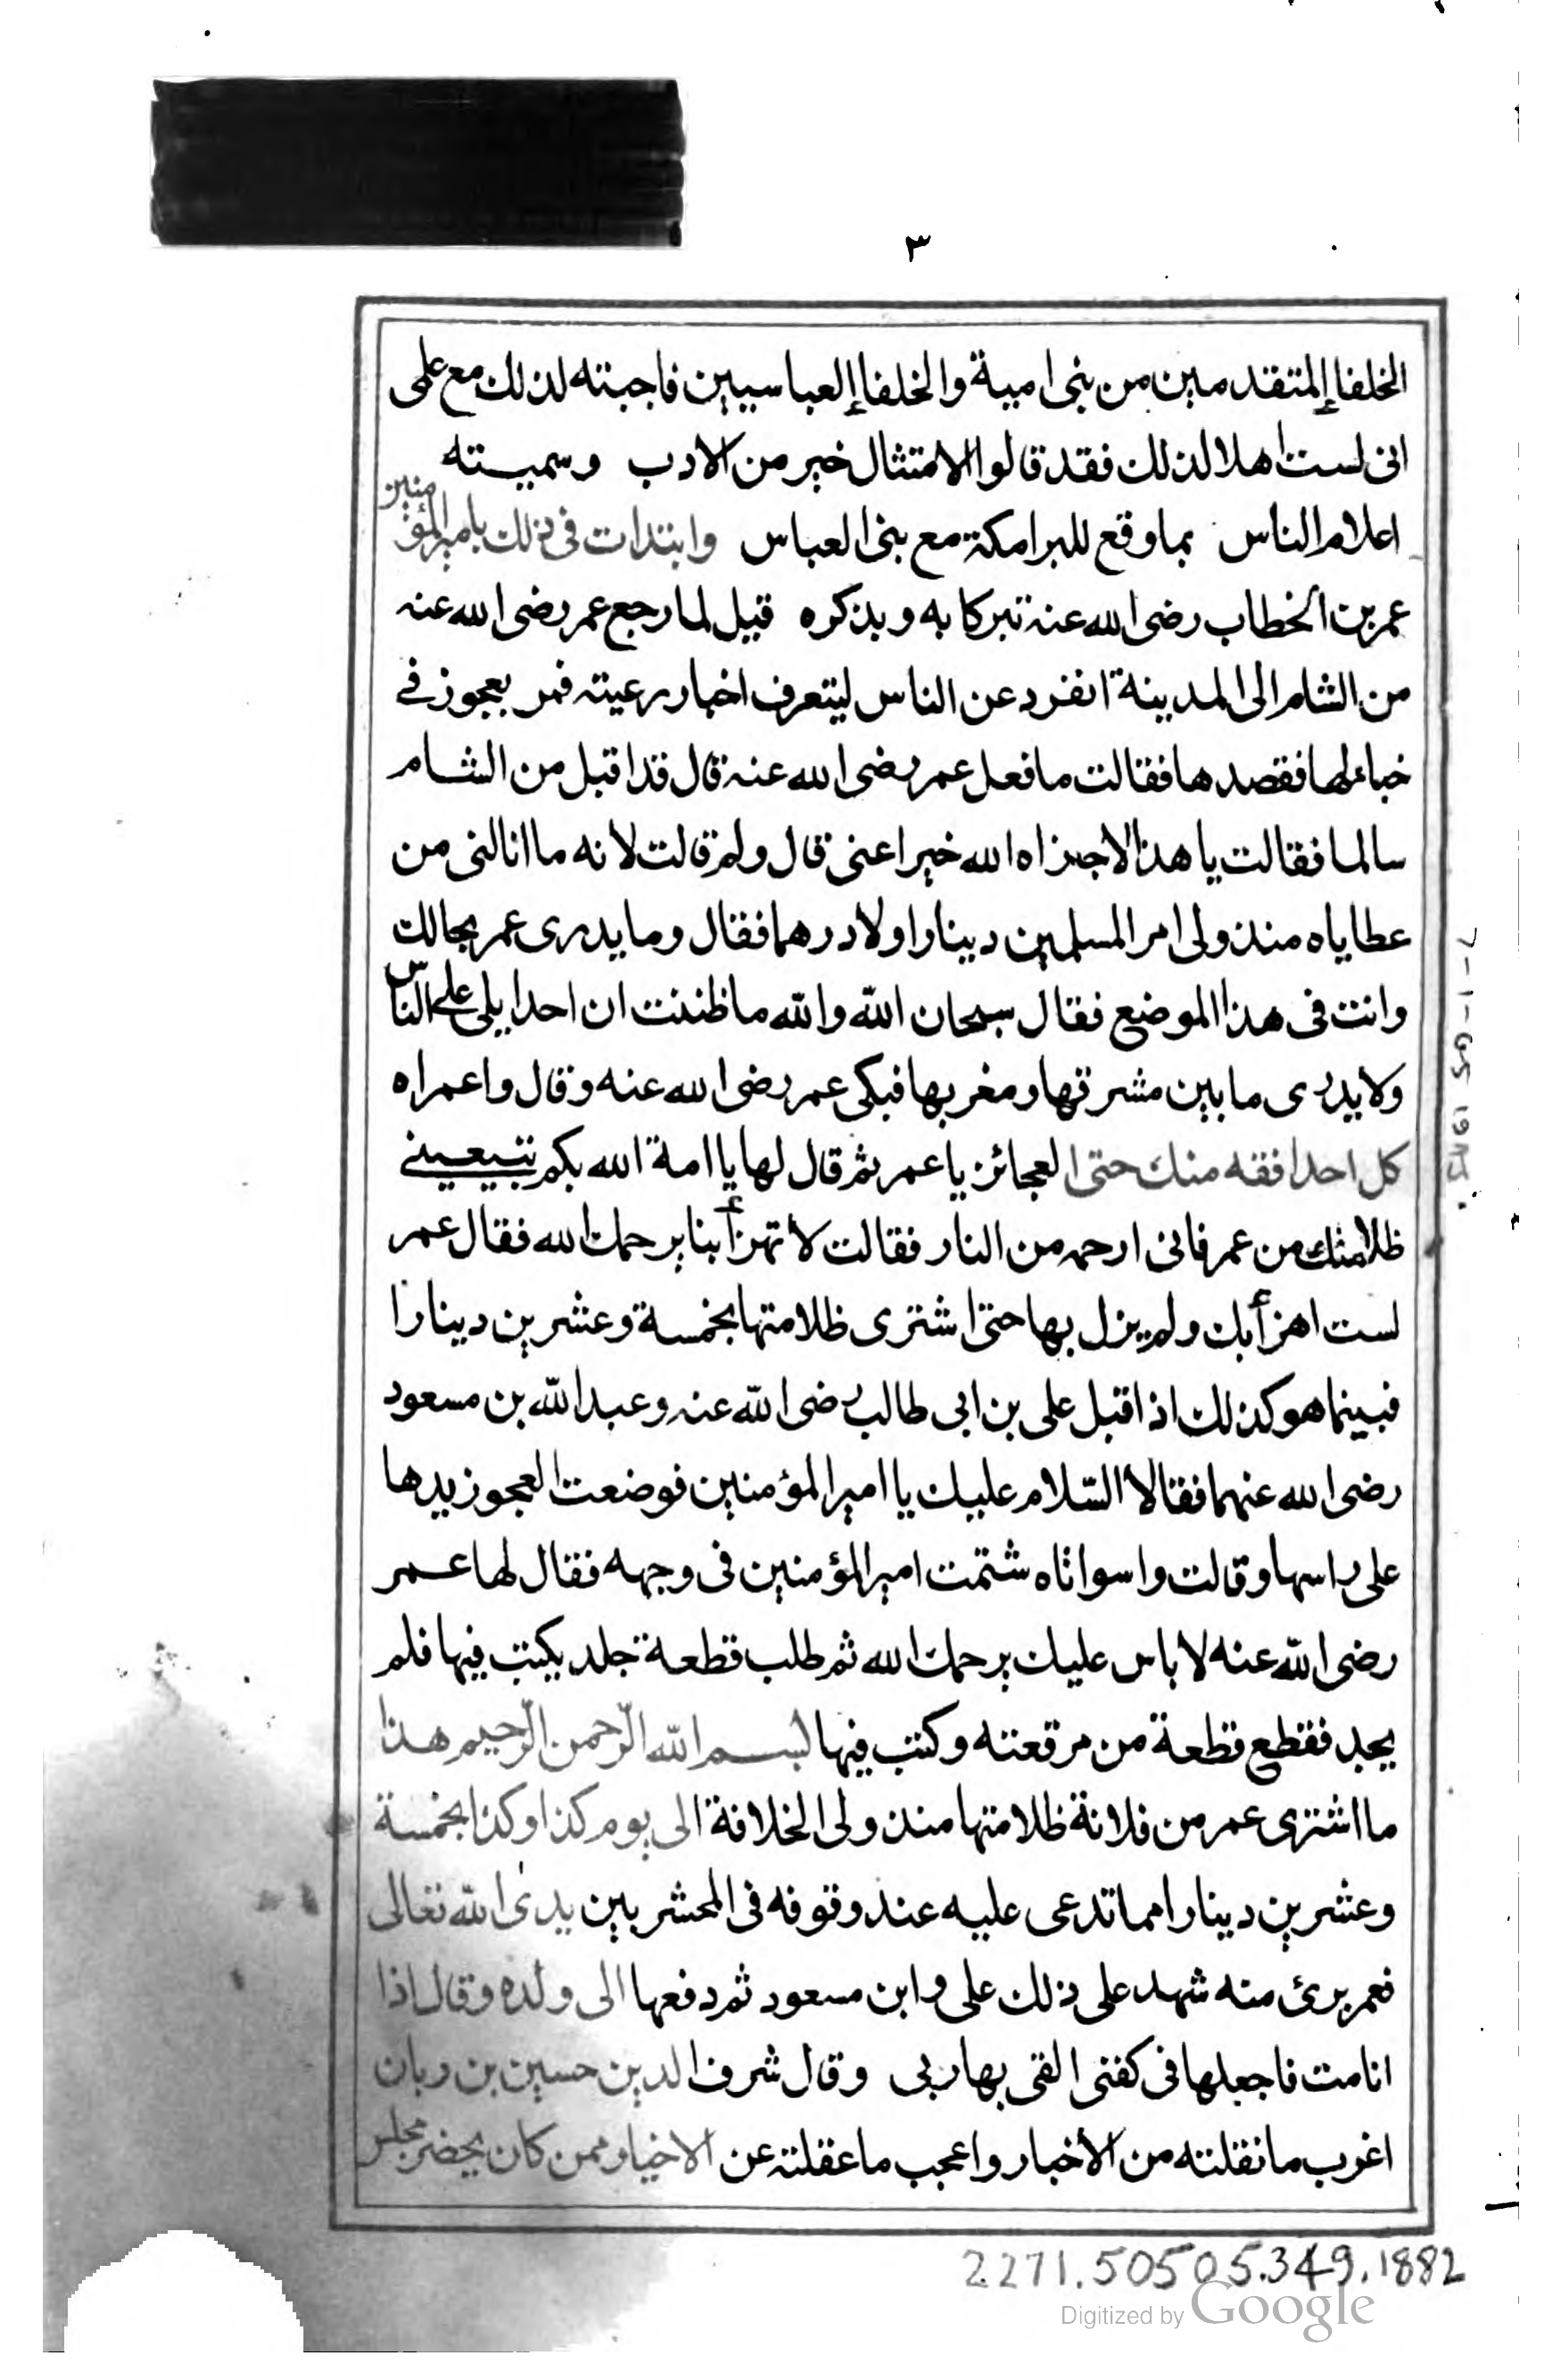 ٣
الخلفاء المتقدمين من بنى امية والخلفاء العباسيين فاجبته لذلك مع علمى
انى لست اهلا لذلك فقد قالوا الامتثال خير من الادب وسميته
اعلام الناس بما وقع للبرامكة مع بنى العباس وابتدات فى ذلك بامير المؤمنين
عمر بن الخطاب رضى الله عنه تبركا به وبذكره قيل لما رجع عمر رضى الله عنه
من الشام الى المدينة انفرد عن الناس ليتعرف اخبار رعيته فمر بعجوز فى
خباء لها فقصدها فقالت ما فعل عمر رضى الله عنه قال قد اقبل من الشام
سالما فقالت يا هذا لا جزاه الله خيرا عنى قال ولم قالت لانه ما انالنى من
عطاياه منذ ولى امر المسلمين دينارا ولا درهما فقال وما يدرى عمر بحالك
وانت فى هذا الموضع فقال سبحان الله والله ما ظننت ان احدا يلى على الناس
ولا يدرى ما بين مشرقها ومغربها فبكى عمر رضى الله عنه وقال واعمراه
كل احد افقه منك حتى العجائز يا عمر ثم قال لها يا امة الله بكم تبيعينى
ظلامتك من عمر فانى ارحمه من النار فقالت لا تهزأ بنا يرحمك الله فقال عمر
لست اهزأ بك ولم يزل بها حتى اشترى ظلامتها بخمسة وعشرين دينارا
فبينما هو كذلك اذ اقبل على بن ابى طالب رضى الله عنه وعبد الله بن مسعود
رضى الله عنهما فقالا السلام عليك يا امير المؤمنين فوضعت العجوز يدها
على راسها وقالت واسواتاه شتمت امير المؤمنين فى وجهه فقال لها عمر
رضى الله عنه لا باس عليك يرحمك الله ثم طلب قطعة جلد يكتب فيها فلم
يجد فقطع قطعة من مرقعته وكتب فيها بسم الله الرحمن الرحيم هذا
ما اشترى عمر من فلانة ظلامتها منذ ولى الخلافة الى يوم كذا وكذا بخمسة
وعشرين دينارا مما تدعى عليه عند وقوفه فى المحشر بين يدى الله تعالى
فعمر برئ منه شهد على ذلك على وابن مسعود ثم دفعها الى ولده وقال اذا
انا مت فاجعلها فى كفنى القى بها ربى وقال شرف الدين حسين بن ريان
اغرب ما نقلته من الأخبار واعجب ما عقلته عن الاخيار ممن كان يحضر مجلس
2271.50505.349.1882
Digitized by Google